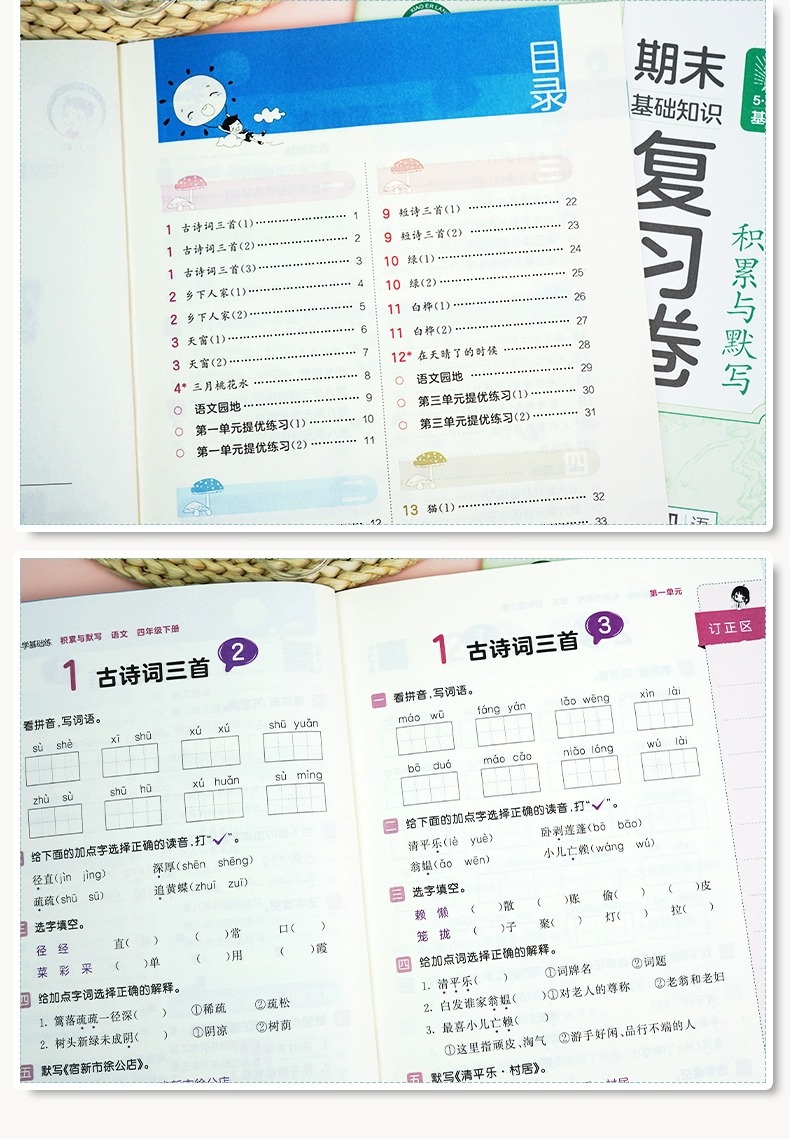 XIAO ER LANG
目录
期末
基础知识
复习卷
积累与默写
一
1 古诗词三首(1) 1
1 古诗词三首(2) 2
1 古诗词三首(3) 3
2 乡下人家(1) 4
2 乡下人家(2) 5
3 天窗(1) 6
3 天窗(2) 7
4* 三月桃花水 8
语文园地 9
第一单元提优练习(1) 10
第一单元提优练习(2) 11
二
12
三
9 短诗三首(1) 22
9 短诗三首(2) 23
10 绿(1) 24
10 绿(2) 25
11 白桦(1) 26
11 白桦(2) 27
12* 在天晴了的时候 28
语文园地 29
第三单元提优练习(1) 30
第三单元提优练习(2) 31
四
13 猫(1) 32
33
学基础练 积累与默写 语文 四年级下册
1 古诗词三首 2
看拼音,写词语。
sù shè xī shū xú xú shū yuǎn
zhù sù shū hū xú huǎn sù mìng
给下面的加点字选择正确的读音,打“✓”。
径直(jìn jìng) 深厚(shēn shēng)
疏疏(shū sū) 追黄蝶(zhuī zuī)
三 选字填空。
径 经 直( ) ( )常 口( )
菜 彩 采 ( )单 ( )用 ( )霞
四 给加点字词选择正确的解释。
1. 篱落疏疏一径深( ) ①稀疏 ②疏松
2. 树头新绿未成阴( ) ①阴凉 ②树荫
五 默写《宿新市徐公店》。
宿新市徐公店
第一单元
1 古诗词三首 3
订正区
一 看拼音,写词语。
máo wū fáng yán lǎo wēng xìn lài
bō duó máo cǎo niǎo lóng wú lài
二 给下面的加点字选择正确的读音,打“✓”。
清平乐(lè yuè) 卧剥莲蓬(bō bāo)
翁媪(ǎo wēn) 小儿亡赖(wáng wú)
三 选字填空。
赖 懒 ( )散 ( )账 偷( ) ( )皮
笼 拢 ( )子 聚( ) 灯( ) 拉( )
四 给加点词选择正确的解释。
1. 清平乐( ) ①词牌名 ②词题
2. 白发谁家翁媪( ) ①对老人的尊称 ②老翁和老妇
3. 最喜小儿亡赖( )
①这里指顽皮、淘气 ②游手好闲、品行不端的人
五 默写《清平乐·村居》。
村居